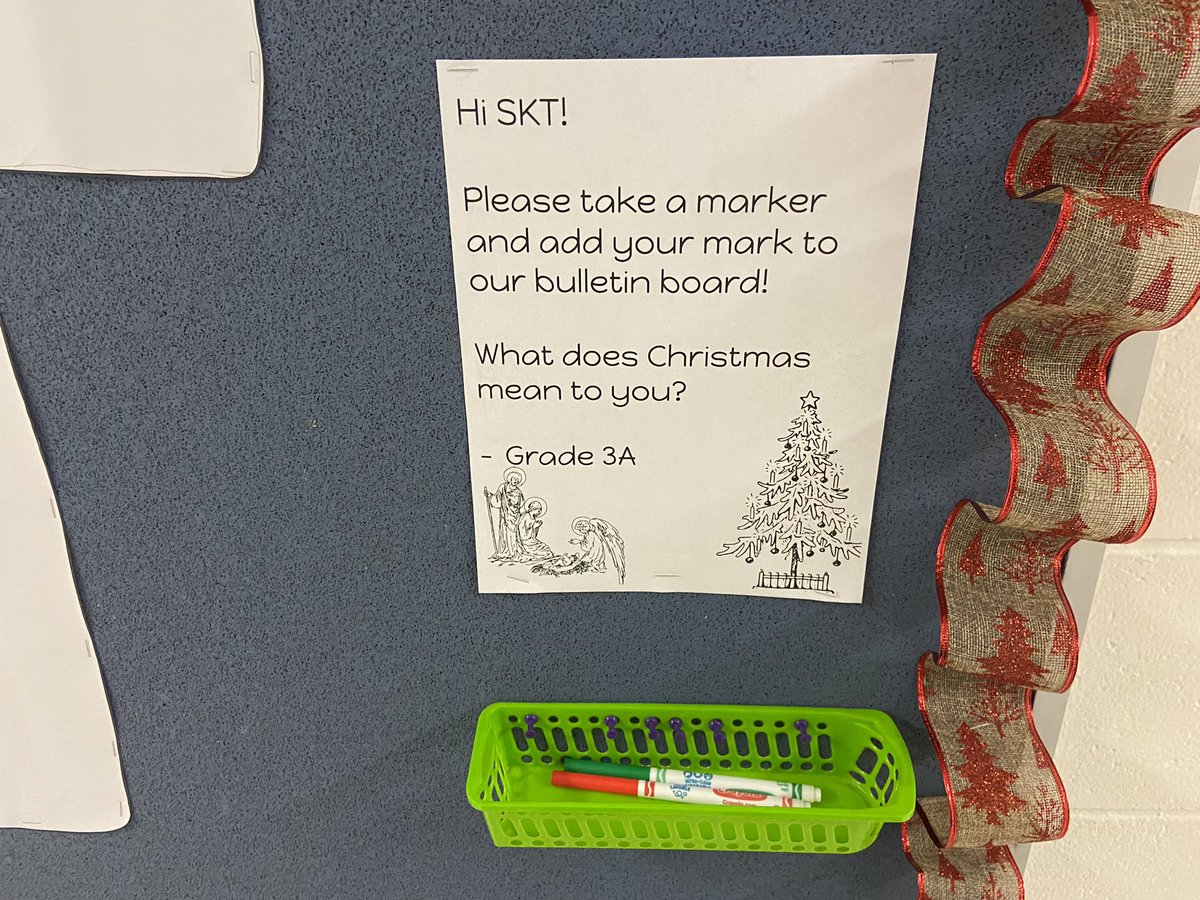 Hi SKT!
Please take a marker
and add your mark to
our bulletin board!
What does Christmas
mean to you?
- Grade 3A
Crayola